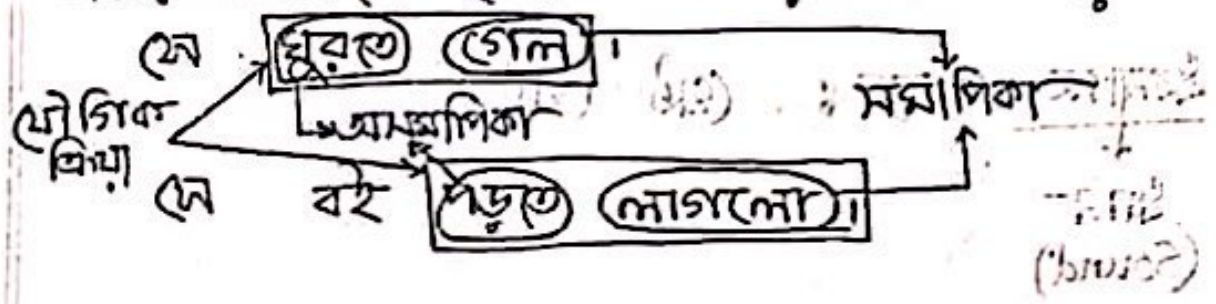 সে ঘুরতে গেল।
যৌগিক ক্রিয়া
অসমাপিকা
সমাপিকা
সে বই পড়তে লাগলো।